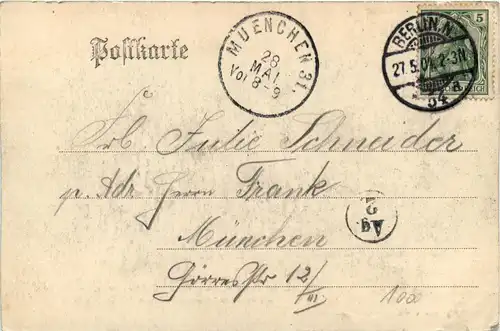 Postkarte
MUENCHEN 31.
28
MAI.
Vor 8-9
BERLIN, N.
27.5.04. 2-3N.
* 54 a
5
Frl. Julie Schneider
p. Adr. Herrn Frank
Ag.
2
München
Görresstr 12/
III
100